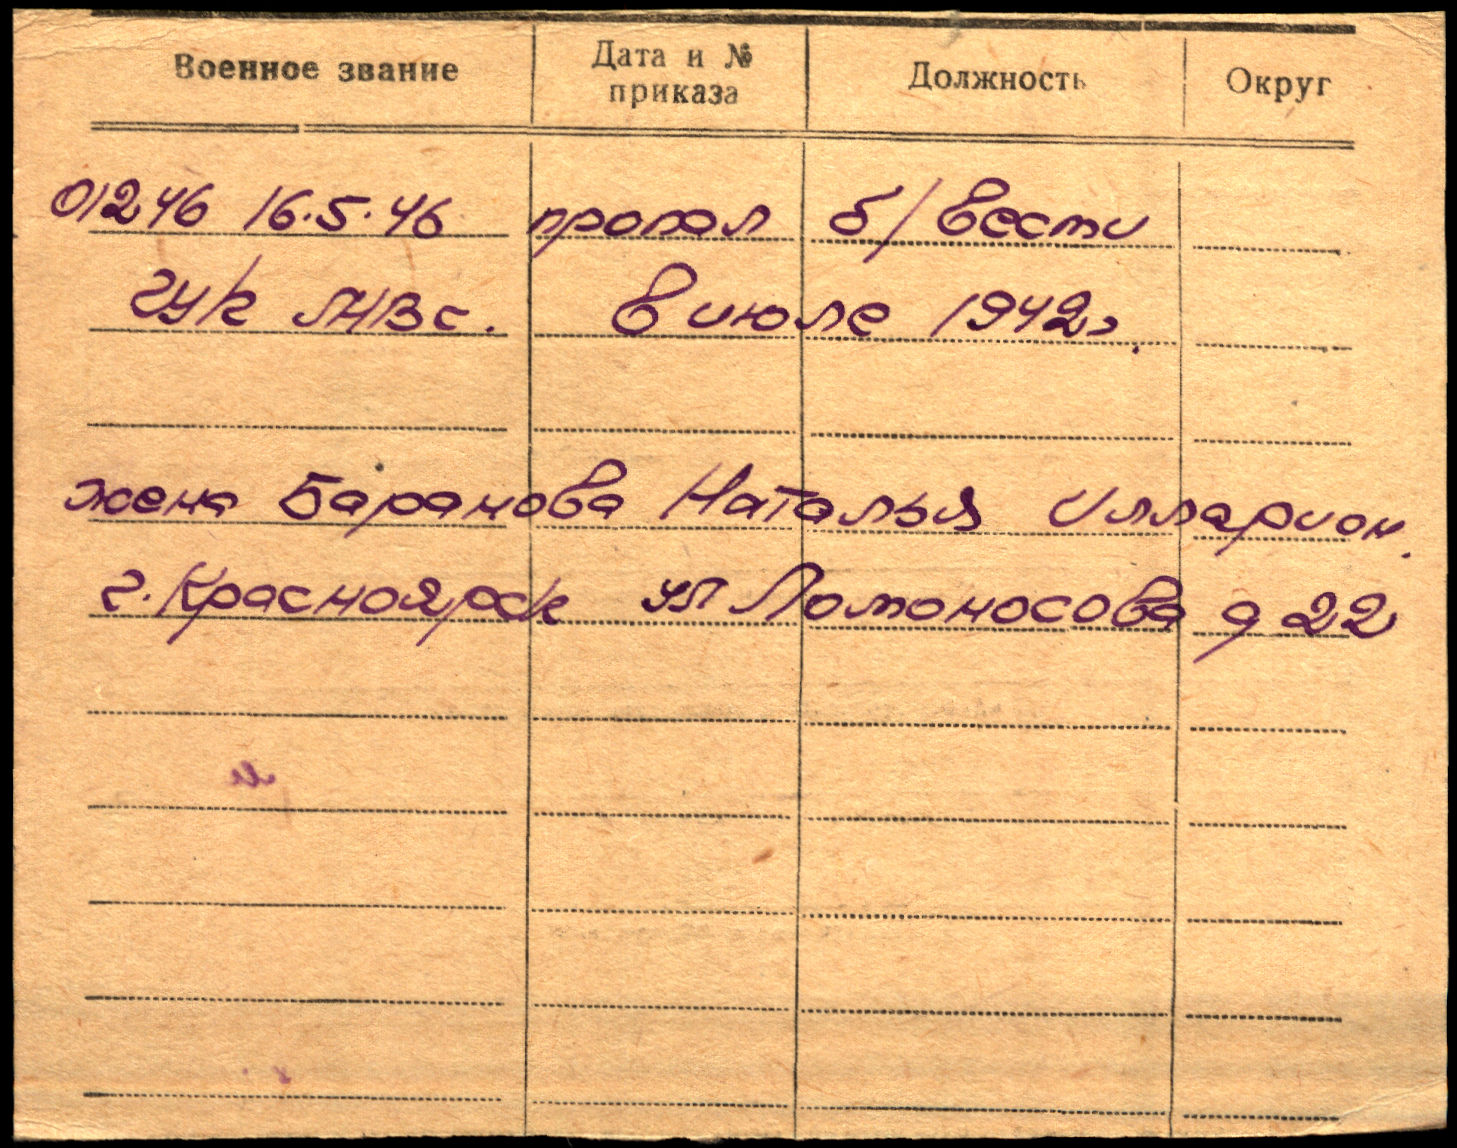 Военное звание Дата и № приказа Должность Округ
01246 16.5.46 пропал б/вести
ГУК НКВС. в июле 1942г.
жена Баранова Наталья Илларион.
г. Красноярск ул Ломоносова д 22